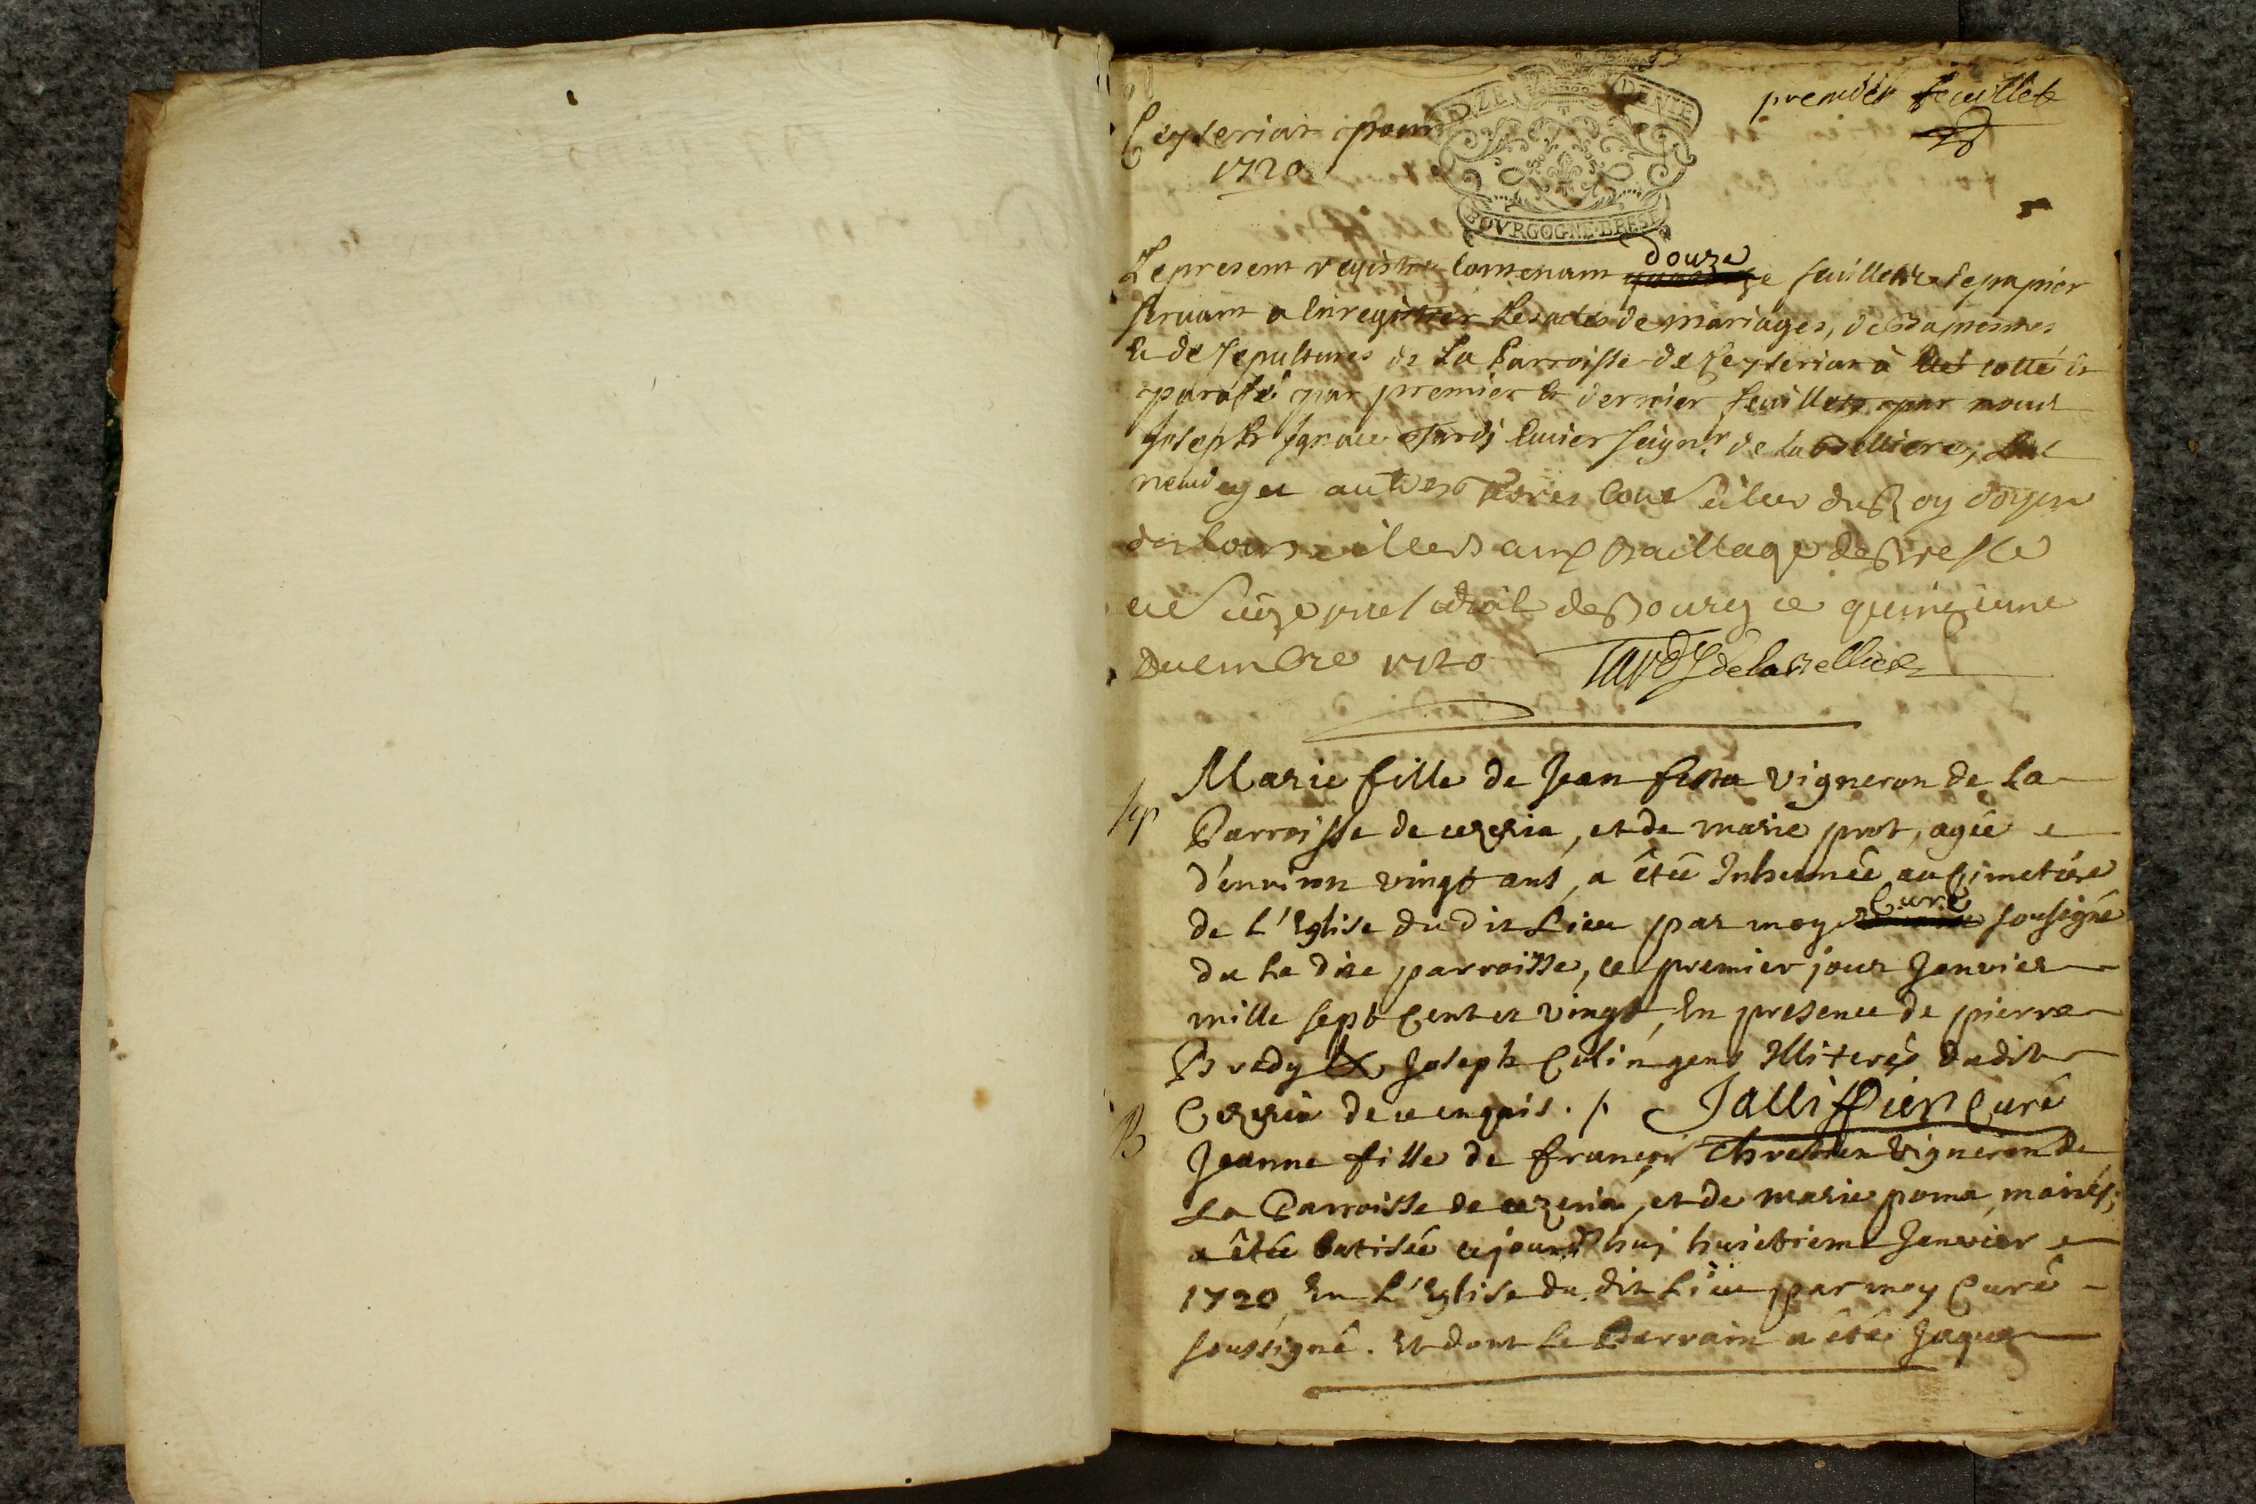 premier feuillet
Ceyseriat pour
1720
ONZE DENIE
BOVRGOGNE BRESSE
Le present registre contenant douze feuillets de papier
servant a Enregistrer les actes de mariages, de baptemes
Et de sepultures de La Parroisse de Ceyseriat à été cotté et
parafé par premier et dernier feuillets par nous
Joseph Ignace Tardy Ecuier seignr de la Belliere,
et autres Conseiller du Roy doyen
des Conseillers aux Bailliage de Bresse
et siege presidial de Bourg ce quinzieme
Decembre 1720 Tardy de la Belliere
Sep
Marie fille de Jean vigneron de La
Parroisse de cezeria, et de marie prot, agée
d'environ vingt ans, a êtée Inhumée au Cimetiere
de L'Eglise du dit Lieu par moy Curé sousigné
de la dite parroisse, ce premier jour Janvier
mille sept Cent et vingt, En presence de pierre
Brady & Joseph Colin gens Illiterés dudit
Cezeria de ce enquis. /. Jalliffier Curé
B
Jeanne fille de françois Chrestien vigneron de
La Parroisse de cezeria, et de marie poma, mariés,
a êtée batisée cejourd'huj huictieme Janvier
1720 En L'Eglise du dit Lieu par moy Curé
soussigné. Et dont le Parrain a êté Jaques